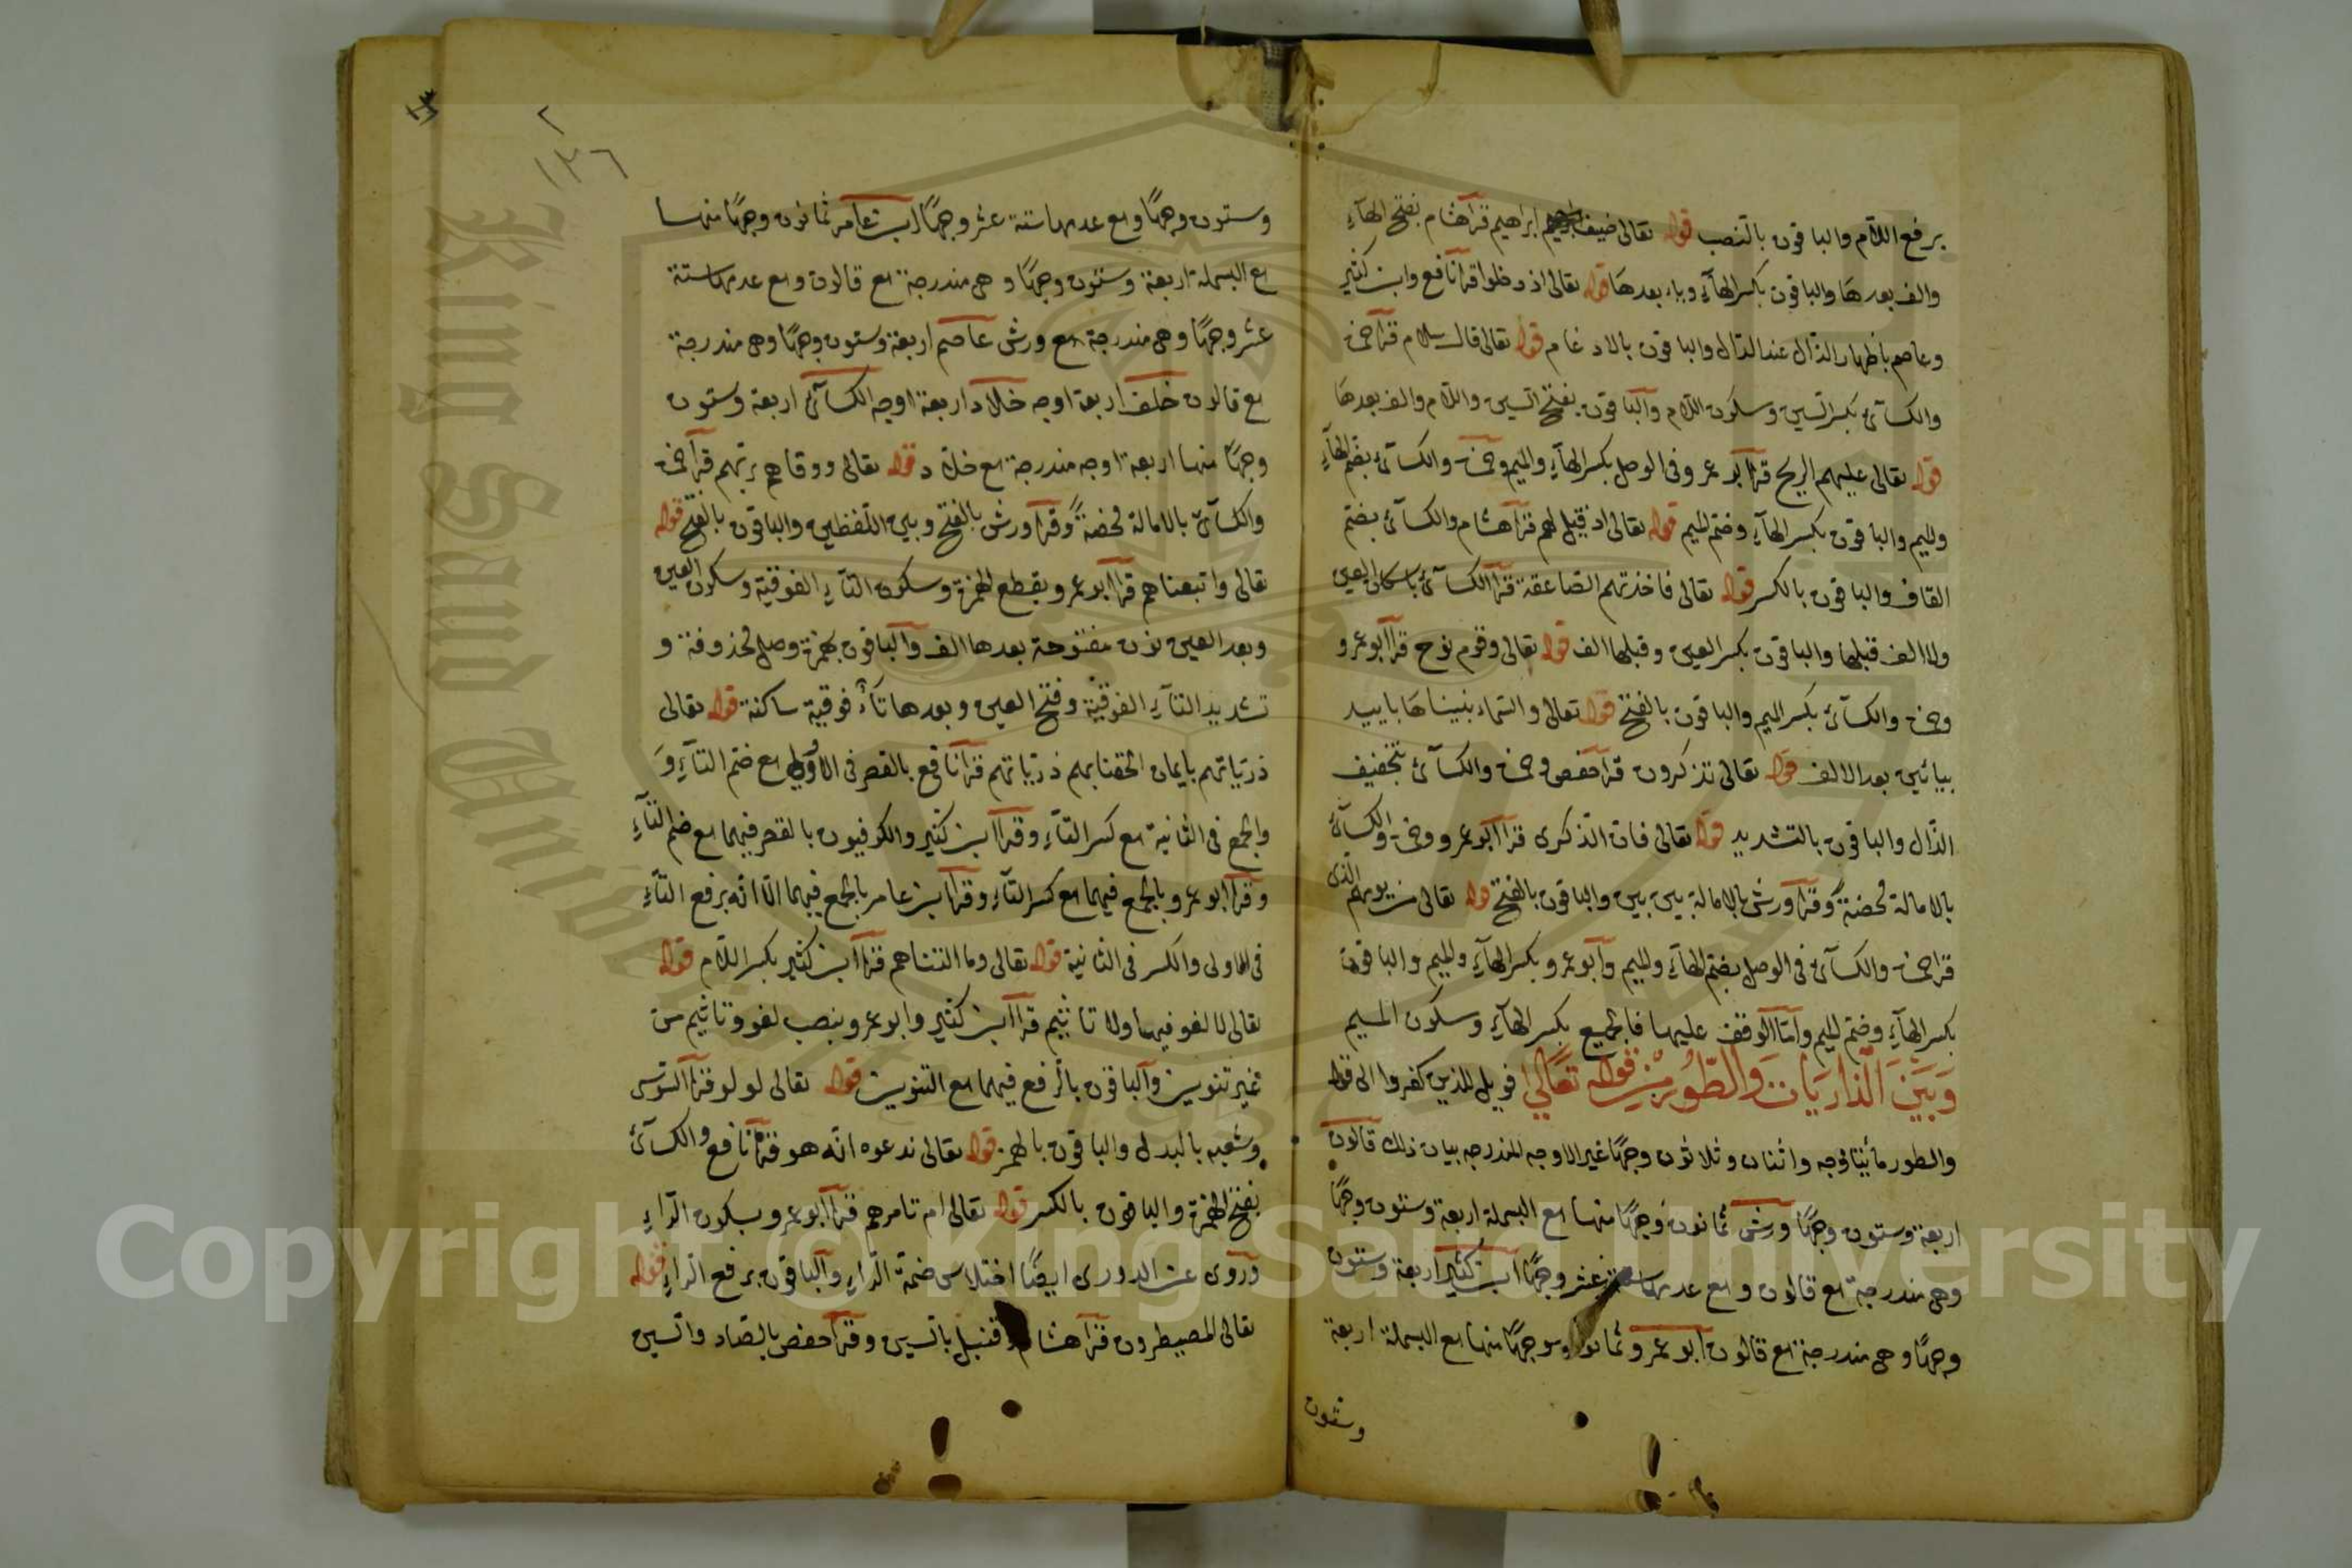 برفع اللام والباقون بالنصب قوله تعالى ضيف ابراهيم قرأ هشام بفتح الهآء
والف بعدها والباقون بكسر الهآء وياء بعدها قوله تعالى اذ دخلوا قرأ نافع وابن كثير
وعاصم باظهار الذال عند الدال والباقون بالادغام قوله تعالى قال سلام قرأ حمزة
والكسآئ بكسر السين وسكون اللام والباقون بفتح السين واللام والف بعدها
قوله تعالى عليهم الريح قرأ ابو عمرو فى الوصل بكسر الهآء والميم وحمزة والكسآئ بضم الهآء
والميم والباقون بكسر الهآء وضم الميم قوله تعالى اذ قيل لهم قرأ هشام والكسآئ بضم
القاف والباقون بالكسر قوله تعالى فاخذتهم الصاعقة قرأ الكسآئ باسكان العين
ولا الف قبلها والباقون بكسر العين وقبلها الف قوله تعالى وقوم نوح قرأ ابو عمرو
وحمزة والكسآئ بكسر الميم والباقون بالفتح قوله تعالى والسماء بنيناها باييد
بيائين بعد الالف قوله تعالى تذكرون قرأ حفص وحمزة والكسآئ بتخفيف
الذال والباقون بالتشديد قوله تعالى فان الذكرى قرأ ابو عمرو وحمزة والكسآئ
بالامالة محضة وقرأ ورش بالامالة بين بين والباقون بالفتح قوله تعالى من يومهم الذى
قرأ حمزة والكسآئ فى الوصل بضم الهآء والميم وابو عمرو بكسر الهآء والميم والباقون
بكسر الهآء وضم الميم واما الوقف عليها فالجميع بكسر الهآء وسكون الميم
وَبَيْنَ الذاريات والطور من قوله تعالى فويل للذين كفروا الى قوله
والطور مائتا وجه واثنان وثلاثون وجهًا غير الاوجه المندرجه بيان ذلك قالون
اربعة وستون وجهًا ورش ثمانون وجهًا منها مع البسملة اربعة وستون وجهًا
وهى مندرجة مع قالون ومع عدمها ستة عشر وجهًا ابن كثير اربعة وستون
وجهًا وهى مندرجة مع قالون ابو عمرو ثمانون وجهًا منها مع البسملة اربعة
وستون
١٣٦
وستون وجهًا ومع عدمها ستة عشر وجهًا ابن عامر ثمانون وجهًا منها
مع البسملة اربعة وستون وجهًا وهى مندرجة مع قالون ومع عدمها ستة
عشر وجهًا وهى مندرجة مع ورش عاصم اربعة وستون وجهًا وهى مندرجة
مع قالون خلف اربعة اوجه خلاد اربعة اوجه الكسآئ اربعة وستون
وجهًا منها اربعة اوجه مندرجة مع خلاد قوله تعالى ووقاهم ربهم قرأ حمزة
والكسآئ بالامالة محضةً وقرأ ورش بالفتح وبين اللفظين والباقون بالفتح قوله
تعالى واتبعناهم قرأ ابو عمرو بقطع الهمزة وسكون التآء الفوقية وسكون العين
وبعد العين نون مفتوحة بعدها الف والباقون بهمزة وصل محذوفة و
تشديد التآء الفوقية وفتح العين وبعدها تآء فوقية ساكنة قوله تعالى
ذرياتهم بايمان الحقنا بهم ذرياتهم قرأ نافع بالقصر فى الاولى مع ضم التآء وَ
والجمع فى الثانية مع كسر التآء وقرأ ابن كثير والكوفيون بالقصر فيهما مع ضم التآء
وقرأ ابو عمرو بالجمع فيهما مع كسر التآء وقرأ ابن عامر بالجمع فيهما الا انه برفع التآء
فى الاولى والكسر فى الثانية قوله تعالى وما التناهم قرأ ابن كثير بكسر اللام قوله
تعالى لا لغو فيها ولا تاثيم قرأ ابن كثير وابو عمرو بنصب لغو وتاثيم من
غير تنوين والباقون بالرفع فيهما مع التنوين قوله تعالى لولو قرأ السوسى
وشعبه بالبدل والباقون بالهمز قوله تعالى ندعوه انه هو قرأ نافع والكسآئ
بفتح الهمزة والباقون بالكسر قوله تعالى ام تامرهم قرأ ابو عمرو بسكون الراء
وروى عن الدورى ايضًا اختلاس ضمة الراء والباقون برفع الراء قوله
تعالى المصيطرون قرأ هشام وقنبل بالسين وقرأ حفص بالصاد والسين
King Saud University
Copyright © King Saud University